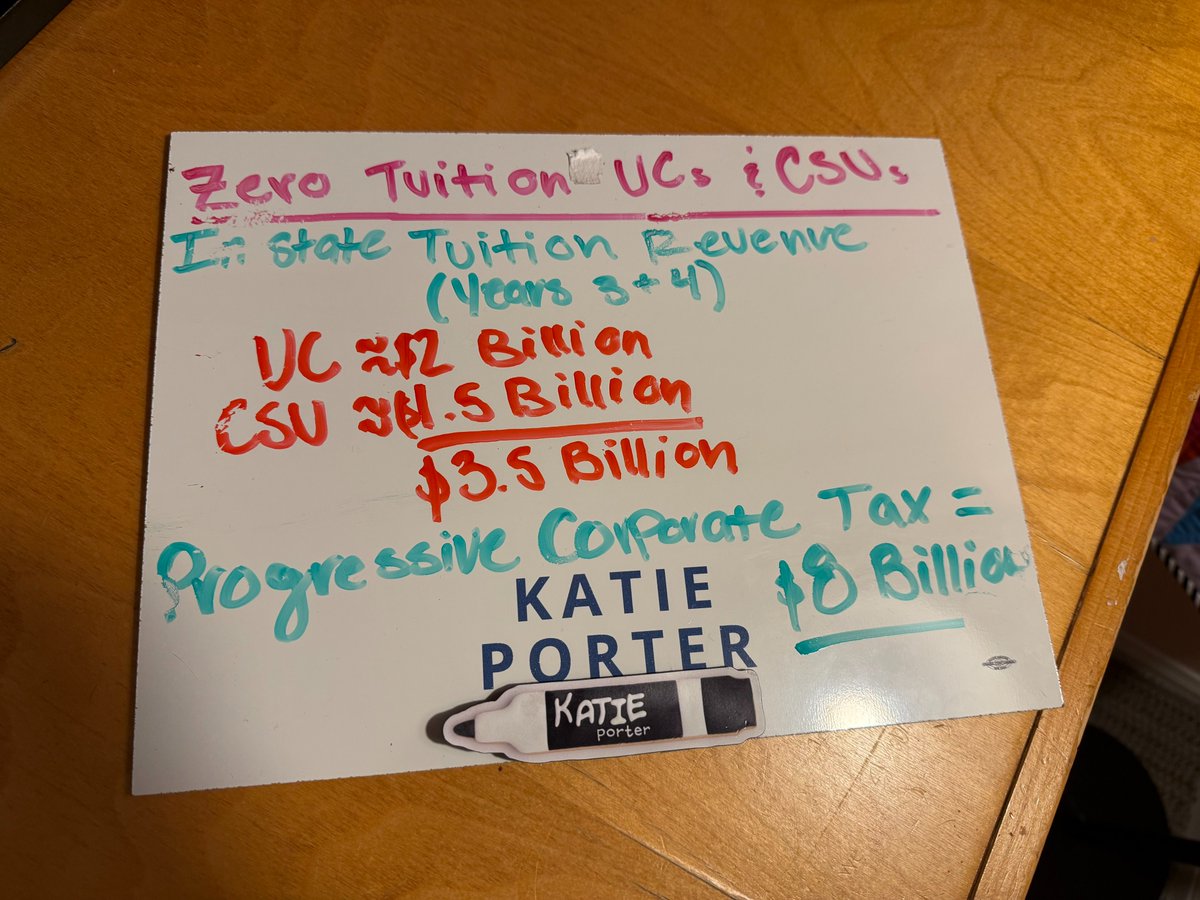 Zero Tuition UCs & CSUs
In state Tuition Revenue
(Years 3+4)
UC ≈$2 Billion
CSU ≈$1.5 Billion
$3.5 Billion
Progressive Corporate Tax =
$8 Billion
KATIE
PORTER
KATIE
porter